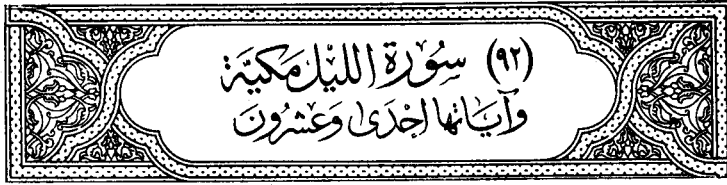 (٩٢) سُورَة اللَّيْل مَكيَّة
وَآيَاتهَا إِحْدَى وَعِشْرُونَ